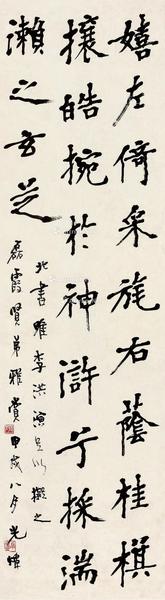 嬉左倚采旄右蔭桂棋
攘皓捥於神滸兮採湍
瀨之玄芝
北書雕李洪演足以擬之
磊霞賢弟雅賞 甲戌八月 光暐